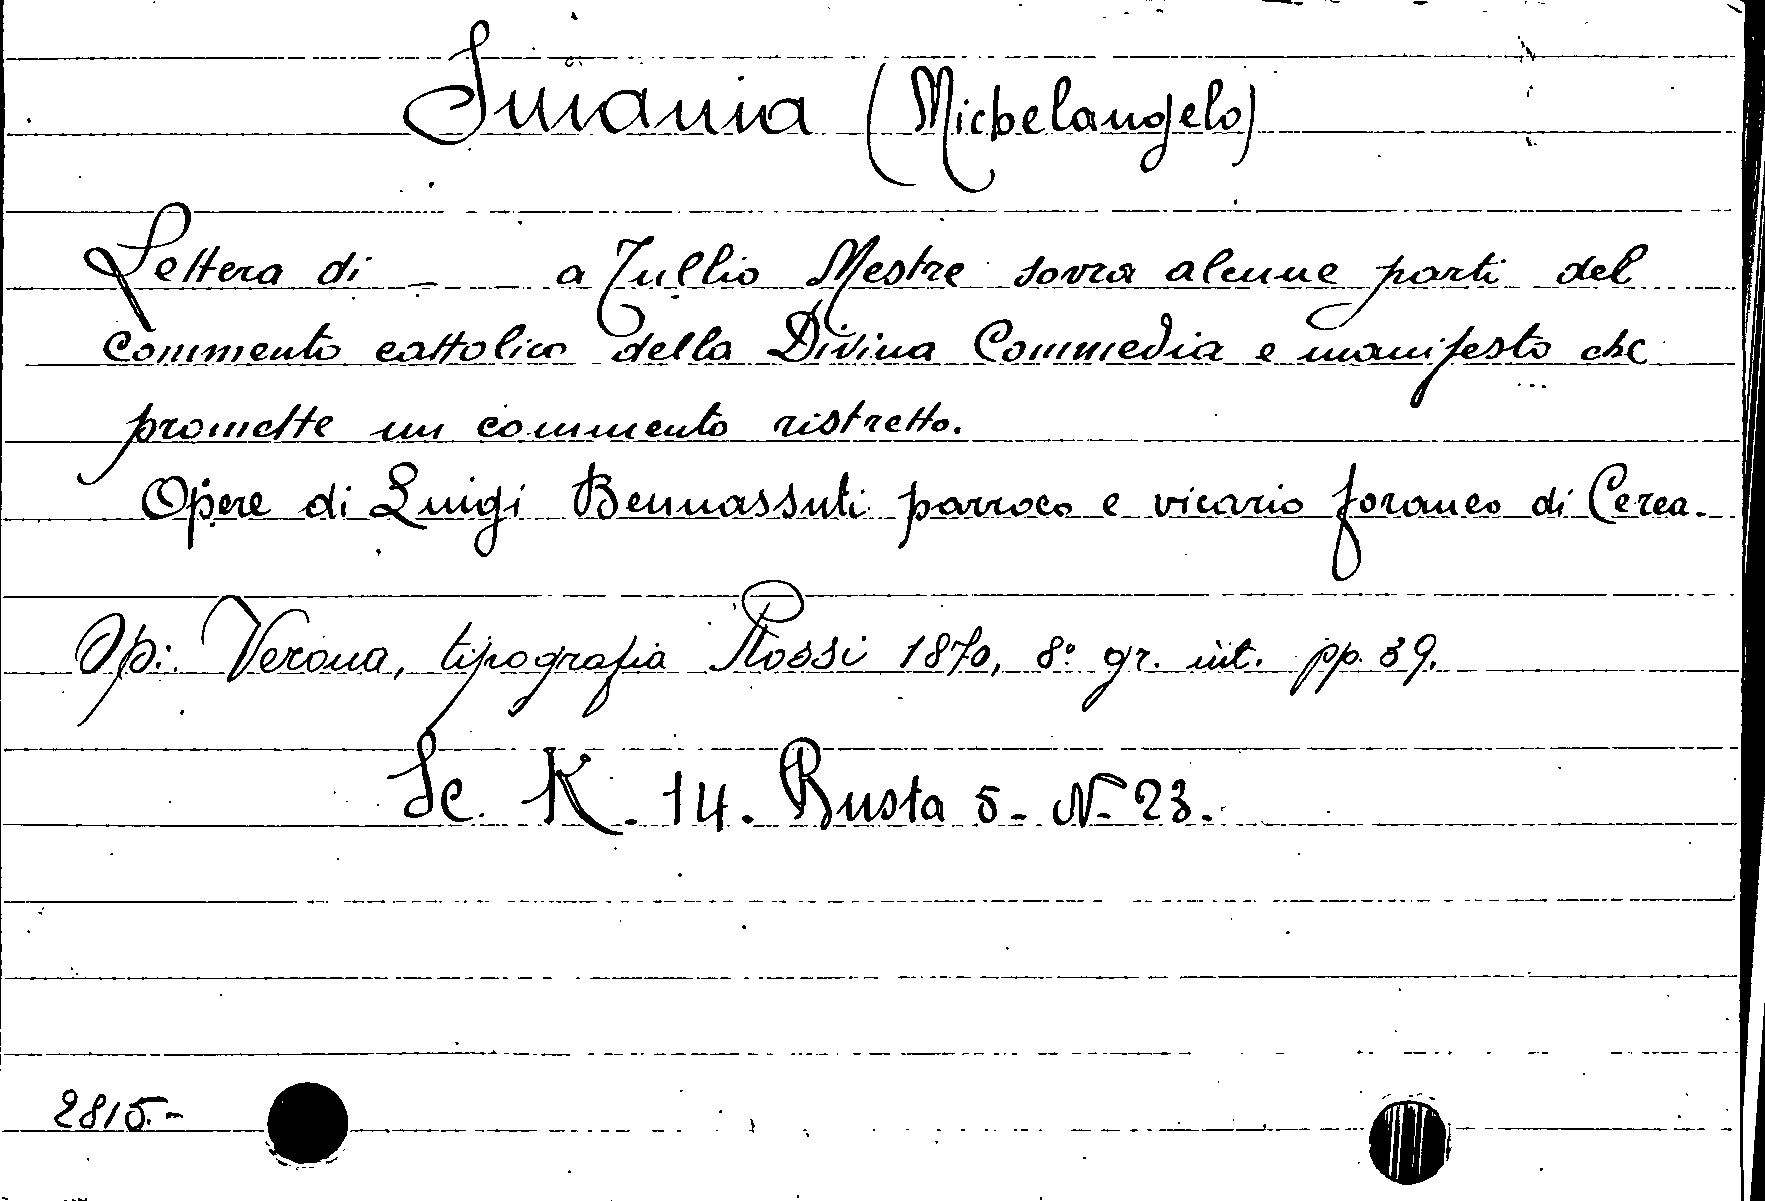 Smania (Michelangelo)
Lettera di _ _ a Tullio Mestre sovra alcune parti del
commento cattolico della Divina Commedia e manifesto che
promette un commento ristretto.
Opere di Luigi Bennassuti parroco e vicario foraneo di Cerea.
Op: Verona, tipografia Rossi 1870, 8º gr. int. pp. 39.
Sc. K. 14. Busta 5. N. 23.
2815.-